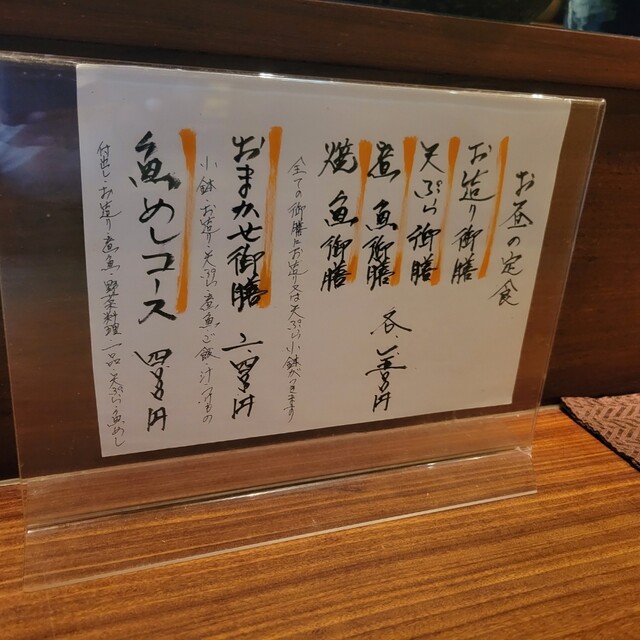 お昼の定食
お造り御膳
天ぷら御膳
煮魚御膳
焼魚御膳
各、円
全ての御膳にお造り又は天ぷら小鉢がつきます
おまかせ御膳 円
小鉢・お造り・天ぷら・煮魚・ご飯・汁・つけもの
魚めしコース 円
付出し・お造り・煮魚・野菜料理一品・天ぷら・魚めし